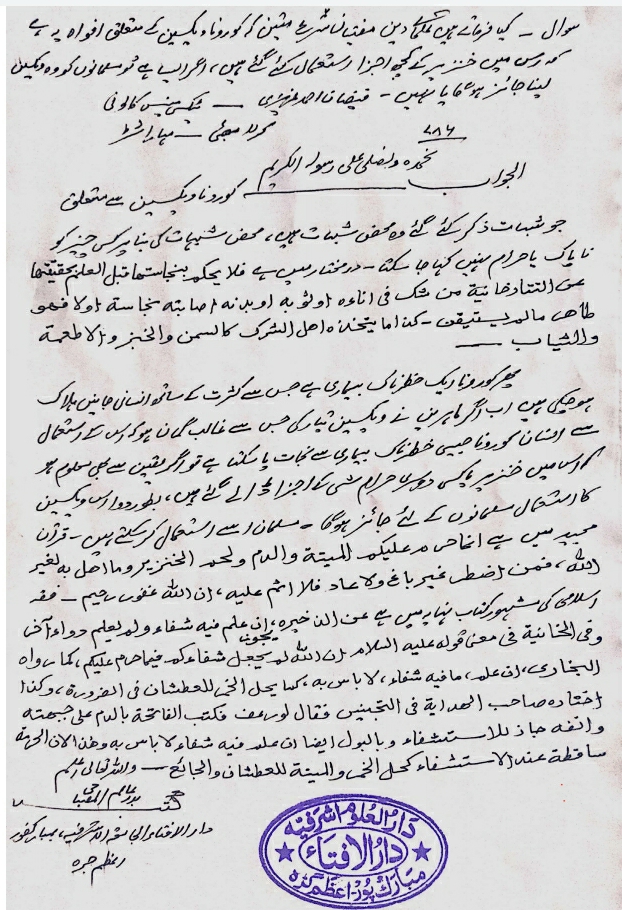 سوال ۔ کیا فرماتے ہیں علمائے دین مفتیان شرع متین کہ کورونا ویکسین کے متعلق افواہ یہ ہے
کہ اس میں خنزیر کے کچھ اجزا استعمال کئے گئے ہیں، اگر ایسا ہے تو مسلمانوں کو وہ ویکسین
لینا جائز ہوگا یا نہیں ۔ فیضان احمد عزیزی ۔ کالونی
کرلا ممبئی ۔ مہاراشٹر
۷۸۶
نحمدہ ونصلی علی رسولہ الکریم
الجواب ـــــــ کورونا ویکسین سے متعلق
جو شبہات ذکر کئے گئے وہ محض شبہات ہیں، محض شبہات کی بنا پر کسی چیز کو
ناپاک یا حرام نہیں کہا جا سکتا ۔ درمختار میں ہے فلا یحکم بنجاستها قبل العلم بحقیقتها
عن التتارخانیة من شک فی اناءه او ثوبه او بدنه اصابته نجاسة اولا فهو
طاهر مالم یستیقن ۔ کذا ما یتخذه اهل الشرک کالسمن والخبز والاطعمة
والثیاب ــــ
پھر کورونا ایک خطرناک بیماری ہے جس سے کثرت کے ساتھ انسانی جانیں ہلاک
ہوچکی ہیں اب اگر ماہرین نے ویکسین تیار کی جس سے غالب گمان ہو کہ اس کے استعمال
سے انسان کورونا جیسی خطرناک بیماری سے نجات پا سکتا ہے تو اگر یقین سے بھی معلوم ہو
کہ اس میں خنزیر یا کسی دوسری حرام شی کے اجزا ڈالے گئے ہیں، بطور دوا اس ویکسین
کا استعمال مسلمانوں کے لئے جائز ہوگا ۔ مسلمان اسے استعمال کرسکتے ہیں ۔ قرآن
مجید میں ہے انما حرم علیکم المیتة والدم ولحم الخنزیر وما اهل به لغیر
الله، فمن اضطر غیر باغ ولا عاد فلا اثم علیه، ان الله غفور رحیم ۔ فقہ
اسلامی کی مشہور کتاب نہایہ میں ہے عن الذخیره، یجوز ان علم فیه شفاء ولم یعلم دواء آخر
وفی الخانیة فی معنی قوله علیه السلام ان الله لم یجعل شفاءکم فیما حرم علیکم، کما رواه
البخاری، ان علم ما فیه شفاء، لا باس به، کما یحل الخمر للعطشان فی الضرورة، وکذا
اختاره صاحب الهدایة فی التجنیس فقال لو رعف فکتب الفاتحة بالدم علی جبهته
وانفه جاز للاستشفاء وبالبول ایضا ان علم فیه شفاء لا باس به وهذا لان الحرمة
ساقطة عند الاستشفاء کحل الخمر والمیتة للعطشان والجائع ـــ واللہ تعالیٰ اعلم
کتبہ
دارالافتاء الجامعۃ الاشرفیہ، مبارکفور
اعظم جرہ
دار العلوم اشرفیہ
دار الافتاء
مبارک پور۔اعظم گڑہ